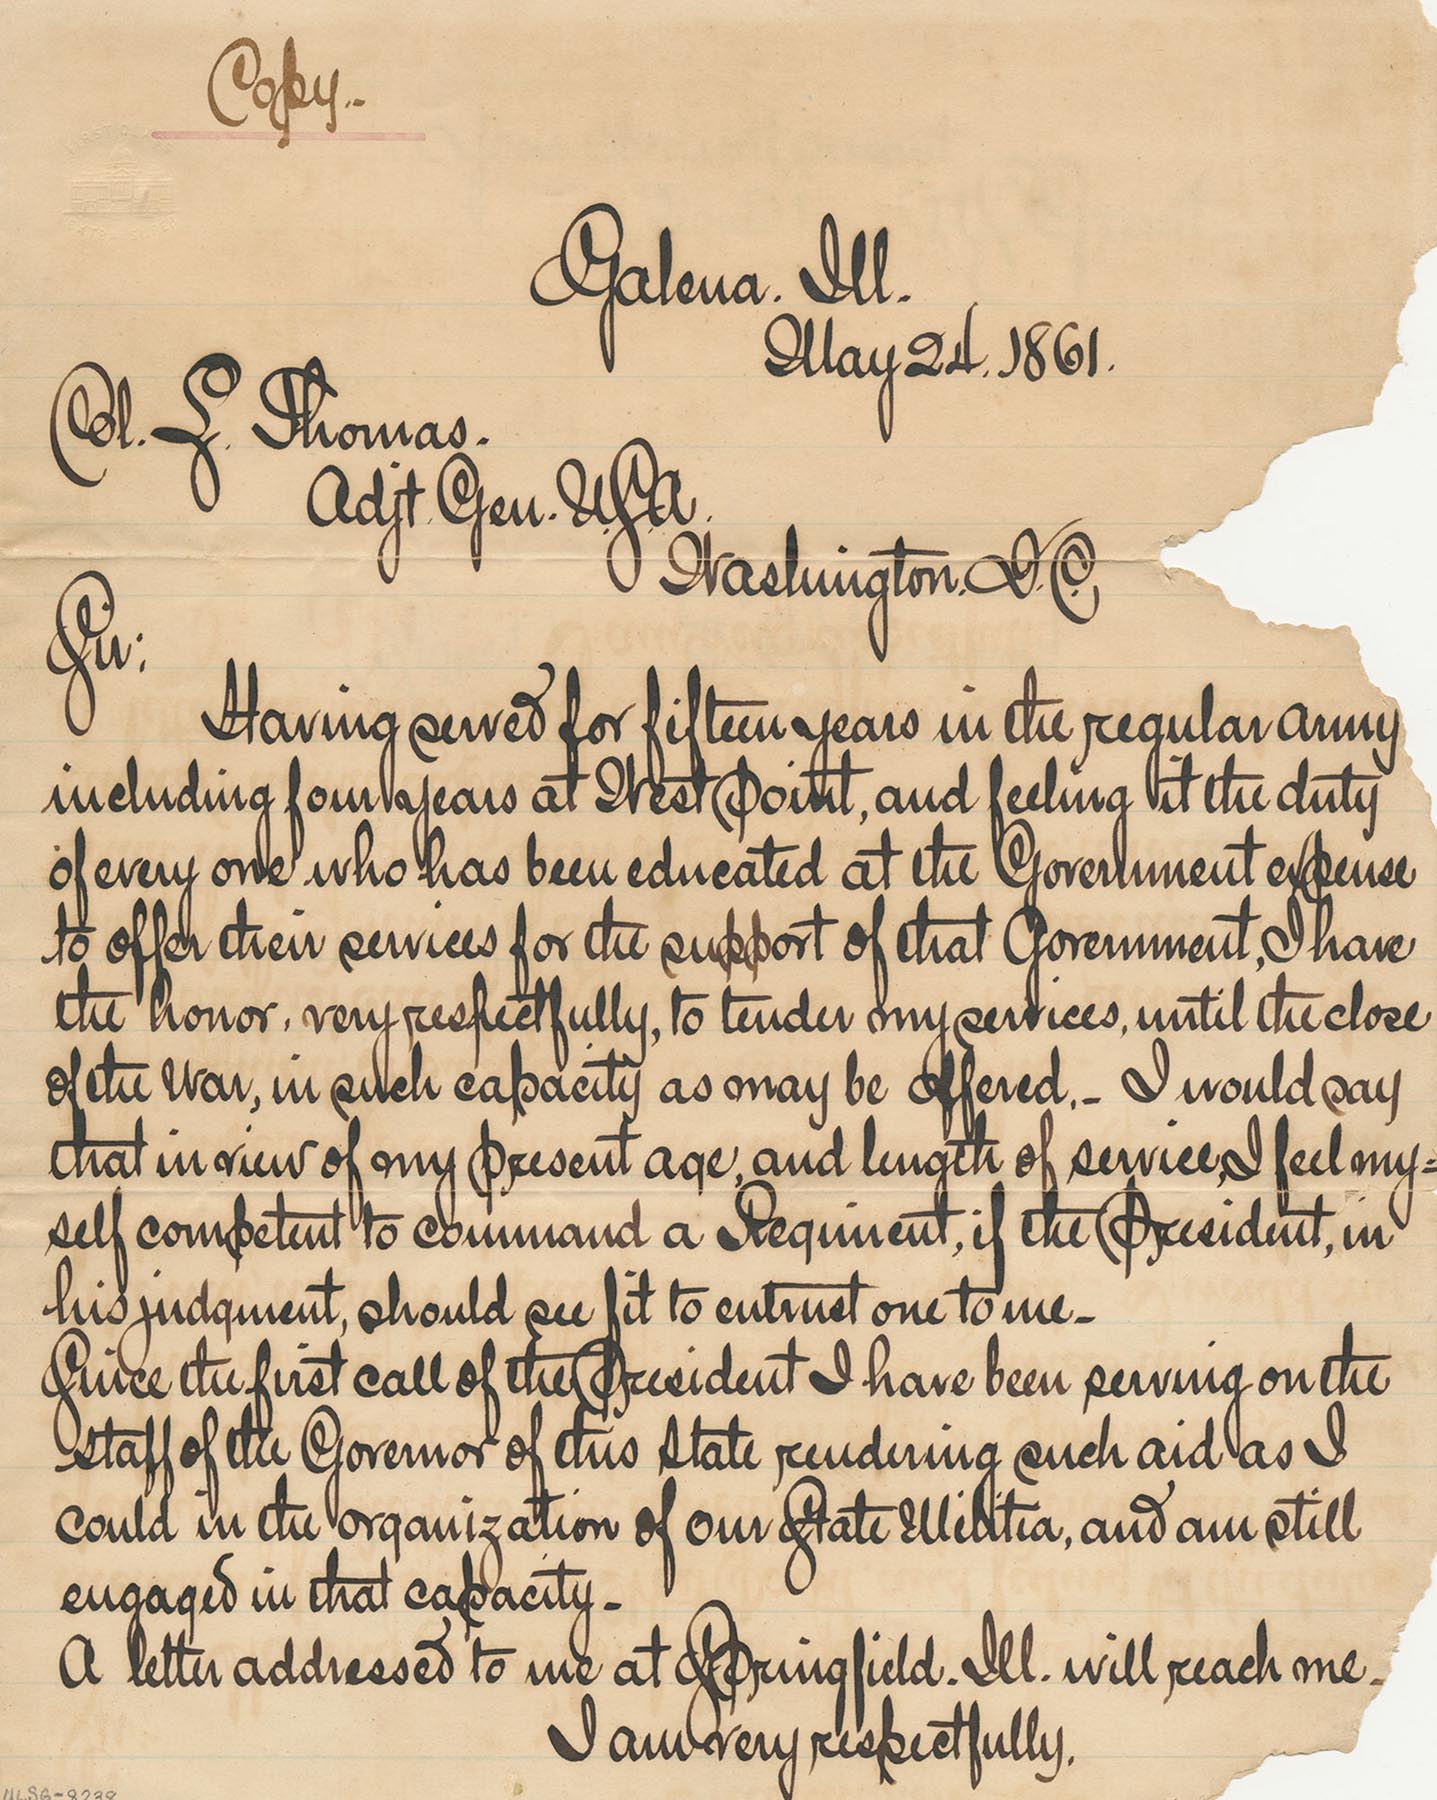 Copy.-
Galena. Ill.
May 24. 1861.
Col. L. Thomas.
Adjt. Gen. U.S.A.
Washington. D.C.
Sir:
Having served for fifteen years in the regular army
including four years at West Point, and feeling it the duty
of every one who has been educated at the Government expense
to offer their services for the support of that Government, I have
the honor, very respectfully, to tender my services, until the close
of the War, in such capacity as may be offered.- I would say
that in view of my present age, and length of service, I feel my=
self competent to command a Regiment, if the President, in
his judgment, should see fit to entrust one to me-
Since the first call of the President I have been serving on the
staff of the Governor of this State rendering such aid as I
could in the organization of our State Militia, and am still
engaged in that capacity-
A letter addressed to me at Springfield. Ill. will reach me.
I am very respectfully.
NLSG-8238